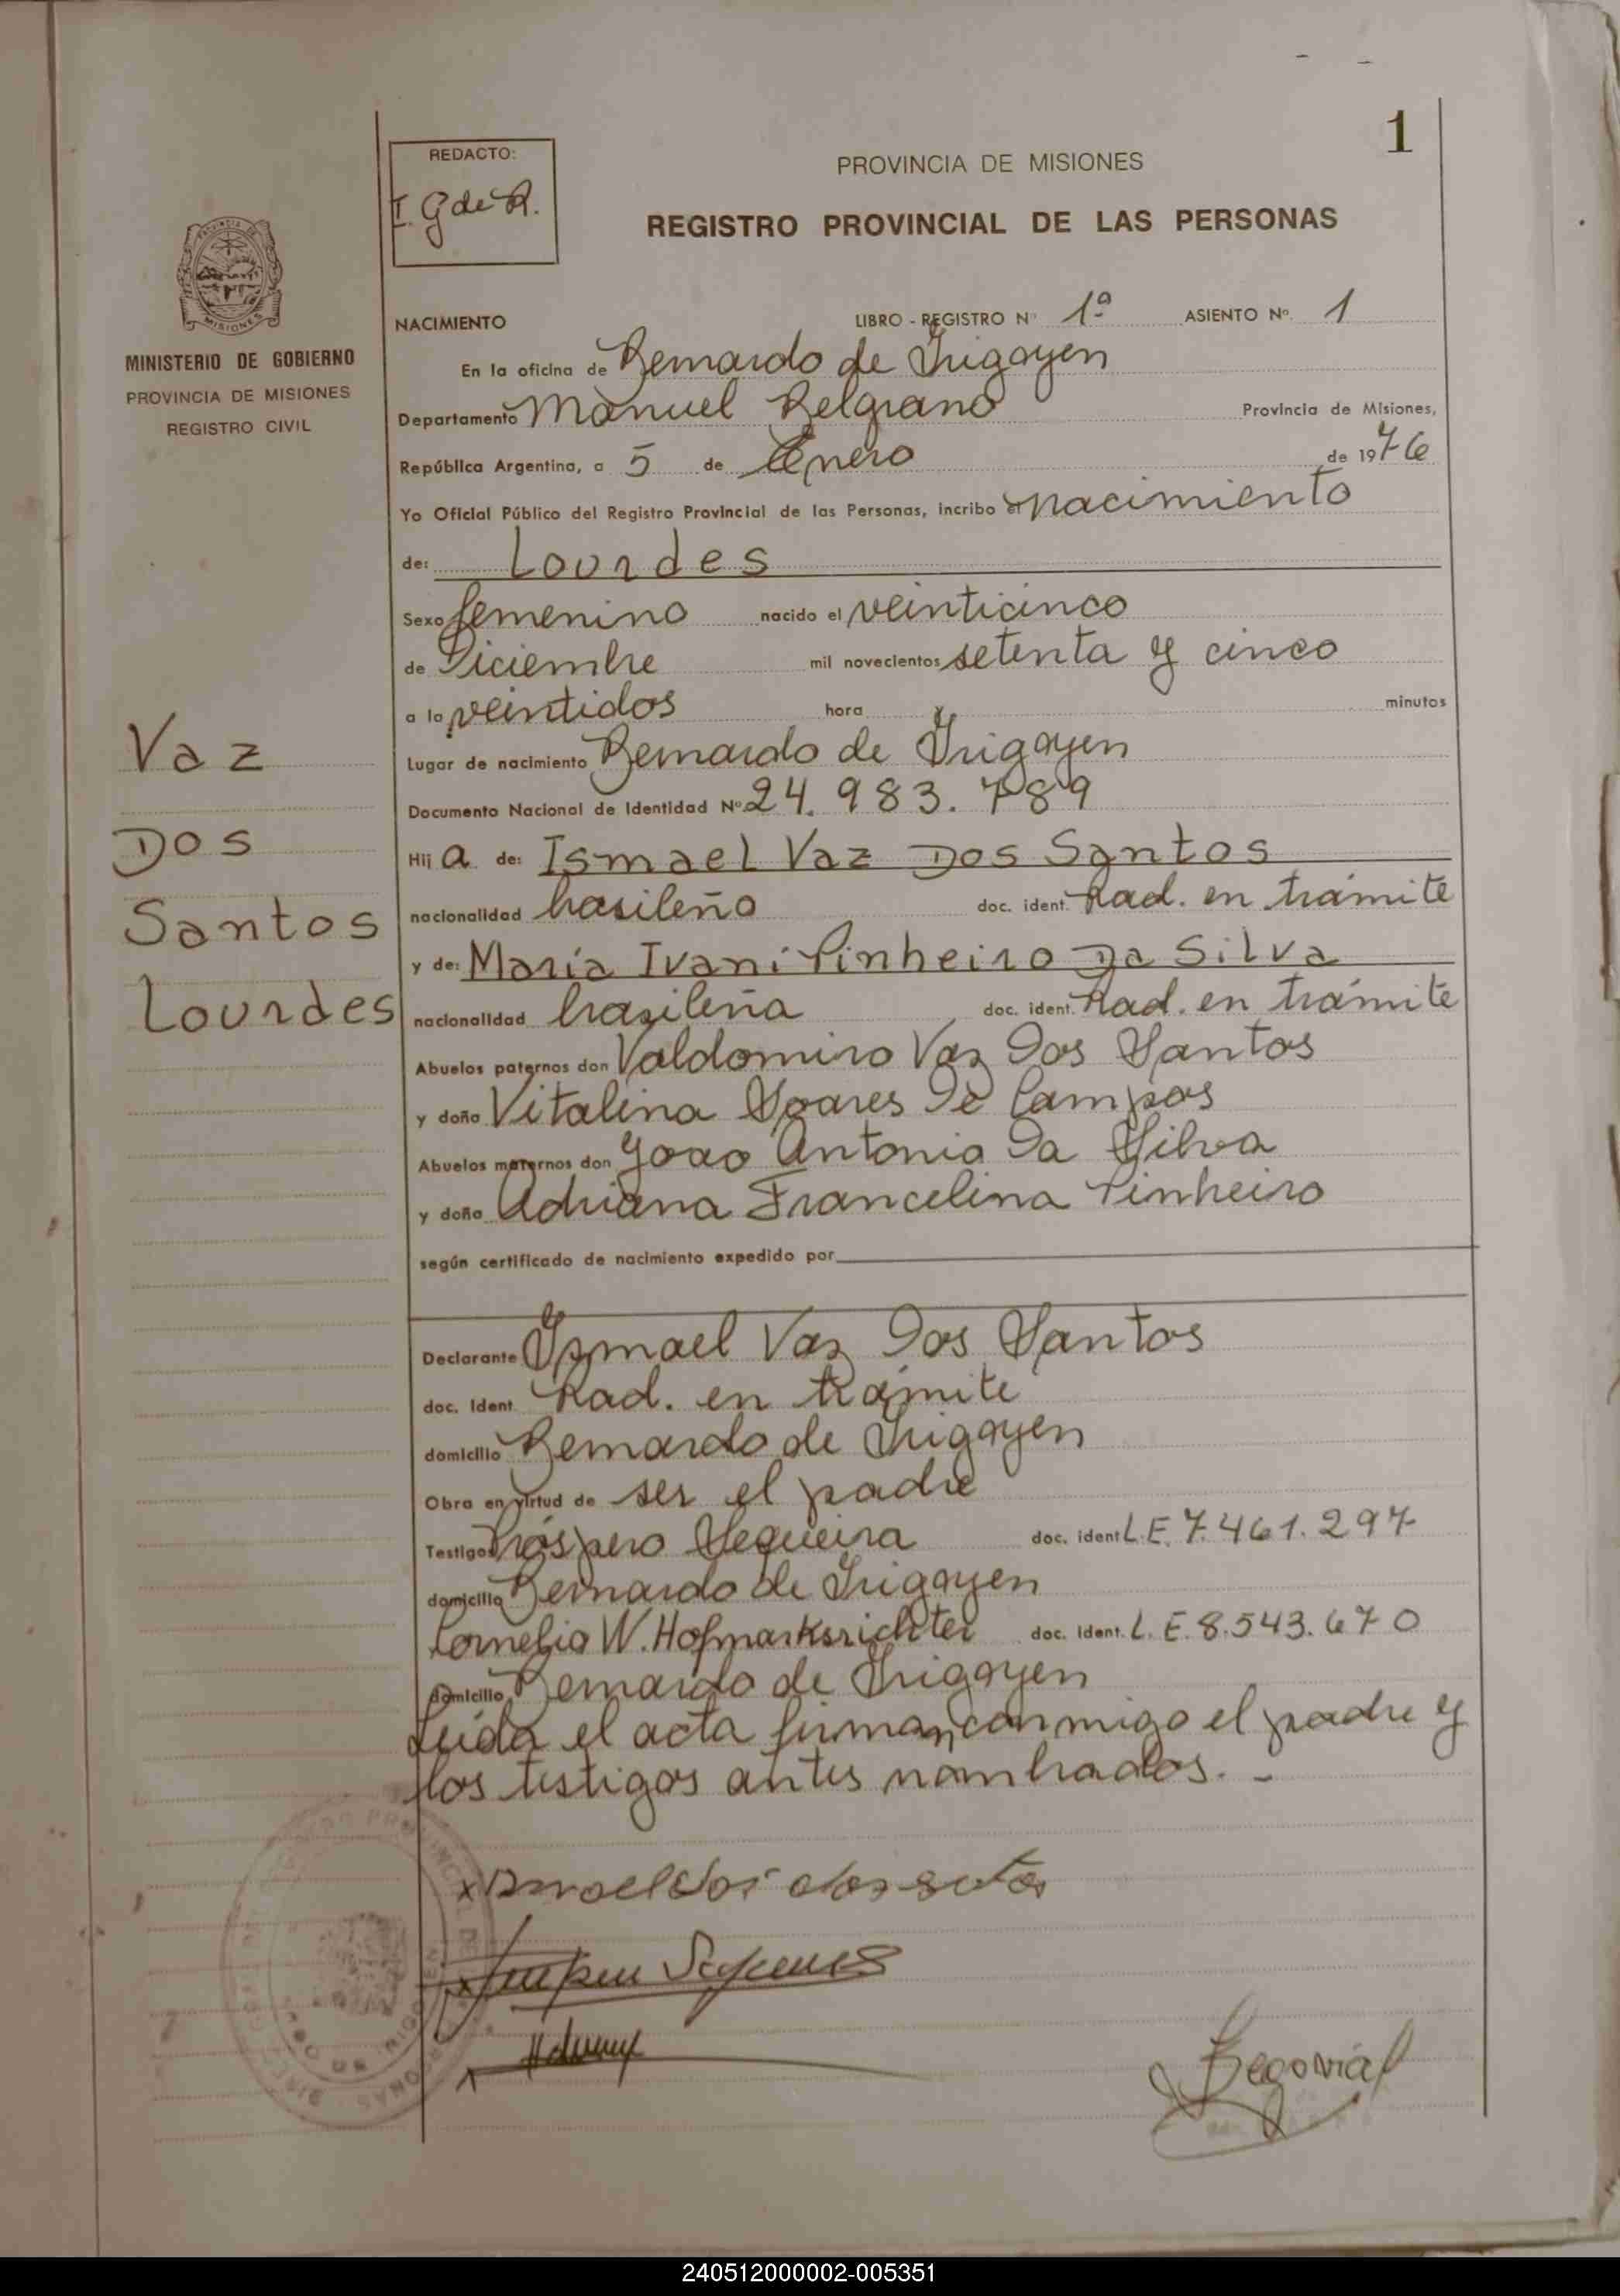 1
REDACTO:
I. G de R.
PROVINCIA DE MISIONES
REGISTRO PROVINCIAL DE LAS PERSONAS
MISIONES
MINISTERIO DE GOBIERNO
PROVINCIA DE MISIONES
REGISTRO CIVIL
NACIMIENTO LIBRO - REGISTRO Nº 1º ASIENTO Nº. 1
En la oficina de Bernardo de Irigoyen
Departamento Manuel Belgrano Provincia de Misiones,
República Argentina, a 5 de Enero de 1976
Yo Oficial Público del Registro Provincial de las Personas, incribo el nacimiento
de: Lourdes
Sexo femenino nacido el veinticinco
de Diciembre mil novecientos setenta y cinco
a la veintidos hora minutos
Lugar de nacimiento Bernardo de Irigoyen
Documento Nacional de Identidad Nº 24.983.789
Hij a de: Ismael Vaz Dos Santos
nacionalidad brasileño doc. ident. Rad. en trámite
y de: María Ivani Pinheiro Da Silva
nacionalidad brasileña doc. ident. Rad. en trámite
Abuelos paternos don Valdomiro Vaz Dos Santos
y doña Vitalina Soares De Campos
Abuelos maternos don Joao Antonio Da Silva
y doña Adriana Francelina Pinheiro
según certificado de nacimiento expedido por
Vaz
Dos
Santos
Lourdes
Declarante Ismael Vaz Dos Santos
doc. Ident. Rad. en trámite
domicilio Bernardo de Irigoyen
Obra en virtud de ser el padre
Testigos Próspero Sequeira doc. ident L.E. 7.461.297
domicilio Bernardo de Irigoyen
Cornelio W. Hofmarksrichter doc. Ident. L.E. 8.543.670
domicilio Bernardo de Irigoyen
Leída el acta firman conmigo el padre y
los testigos antes nombrados. -
240512000002-005351